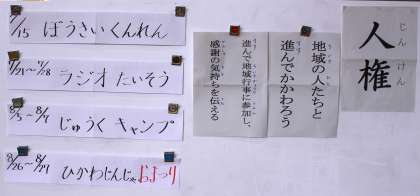 7/15 ぼうさいくんれん
7/21~7/28 ラジオ たいそう
8/5~8/7 じゅうく キャンプ
8/26~8/27 ひかわじんじゃ おまつり
地域の人たちと
進んでかかわろう
進んで地域行事に参加し、
感謝の気持ちを伝える
じん けん
人権